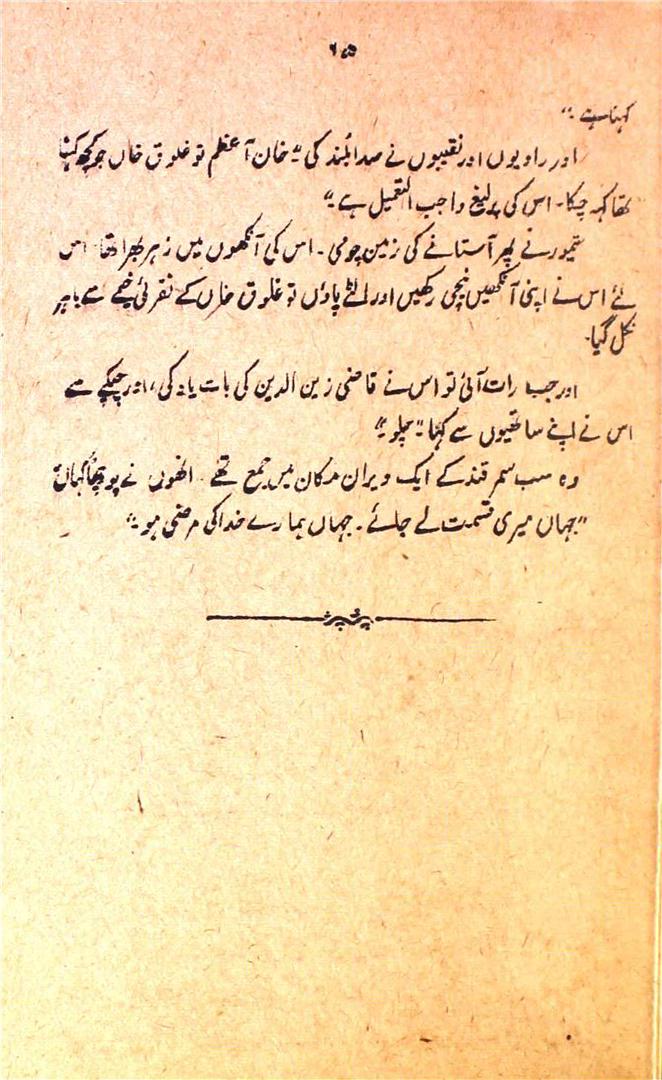 ۶۵
کہنا ہے۔"
اور راویوں اور نقیبوں نے صدا بلند کی "خان آعظم توغلوق خاں جو کچھ کہنا
تھا کہہ چکا۔ اس کی یرلیغ واجب التعمیل ہے۔"
تیمور نے پھر آستانے کی زمین چومی۔ اس کی آنکھوں میں زہر بھرا تھا۔ اس
لئے اس نے اپنی آنکھیں نیچی رکھیں اور الٹے پاؤں توغلوق خاں کے نقرئی خیمے سے باہر
نکل گیا۔
اور جب رات آئی تو اس نے قاضی زین الدین کی بات یاد کی، اور چپکے سے
اس نے اپنے ساتھیوں سے کہا۔ "چلو۔"
وہ سب سمرقند کے ایک ویران مکان میں جمع تھے۔ انھوں نے پوچھا "کہاں؟"
"جہاں میری قسمت لے جائے۔ جہاں ہمارے خدا کی مرضی ہو۔"